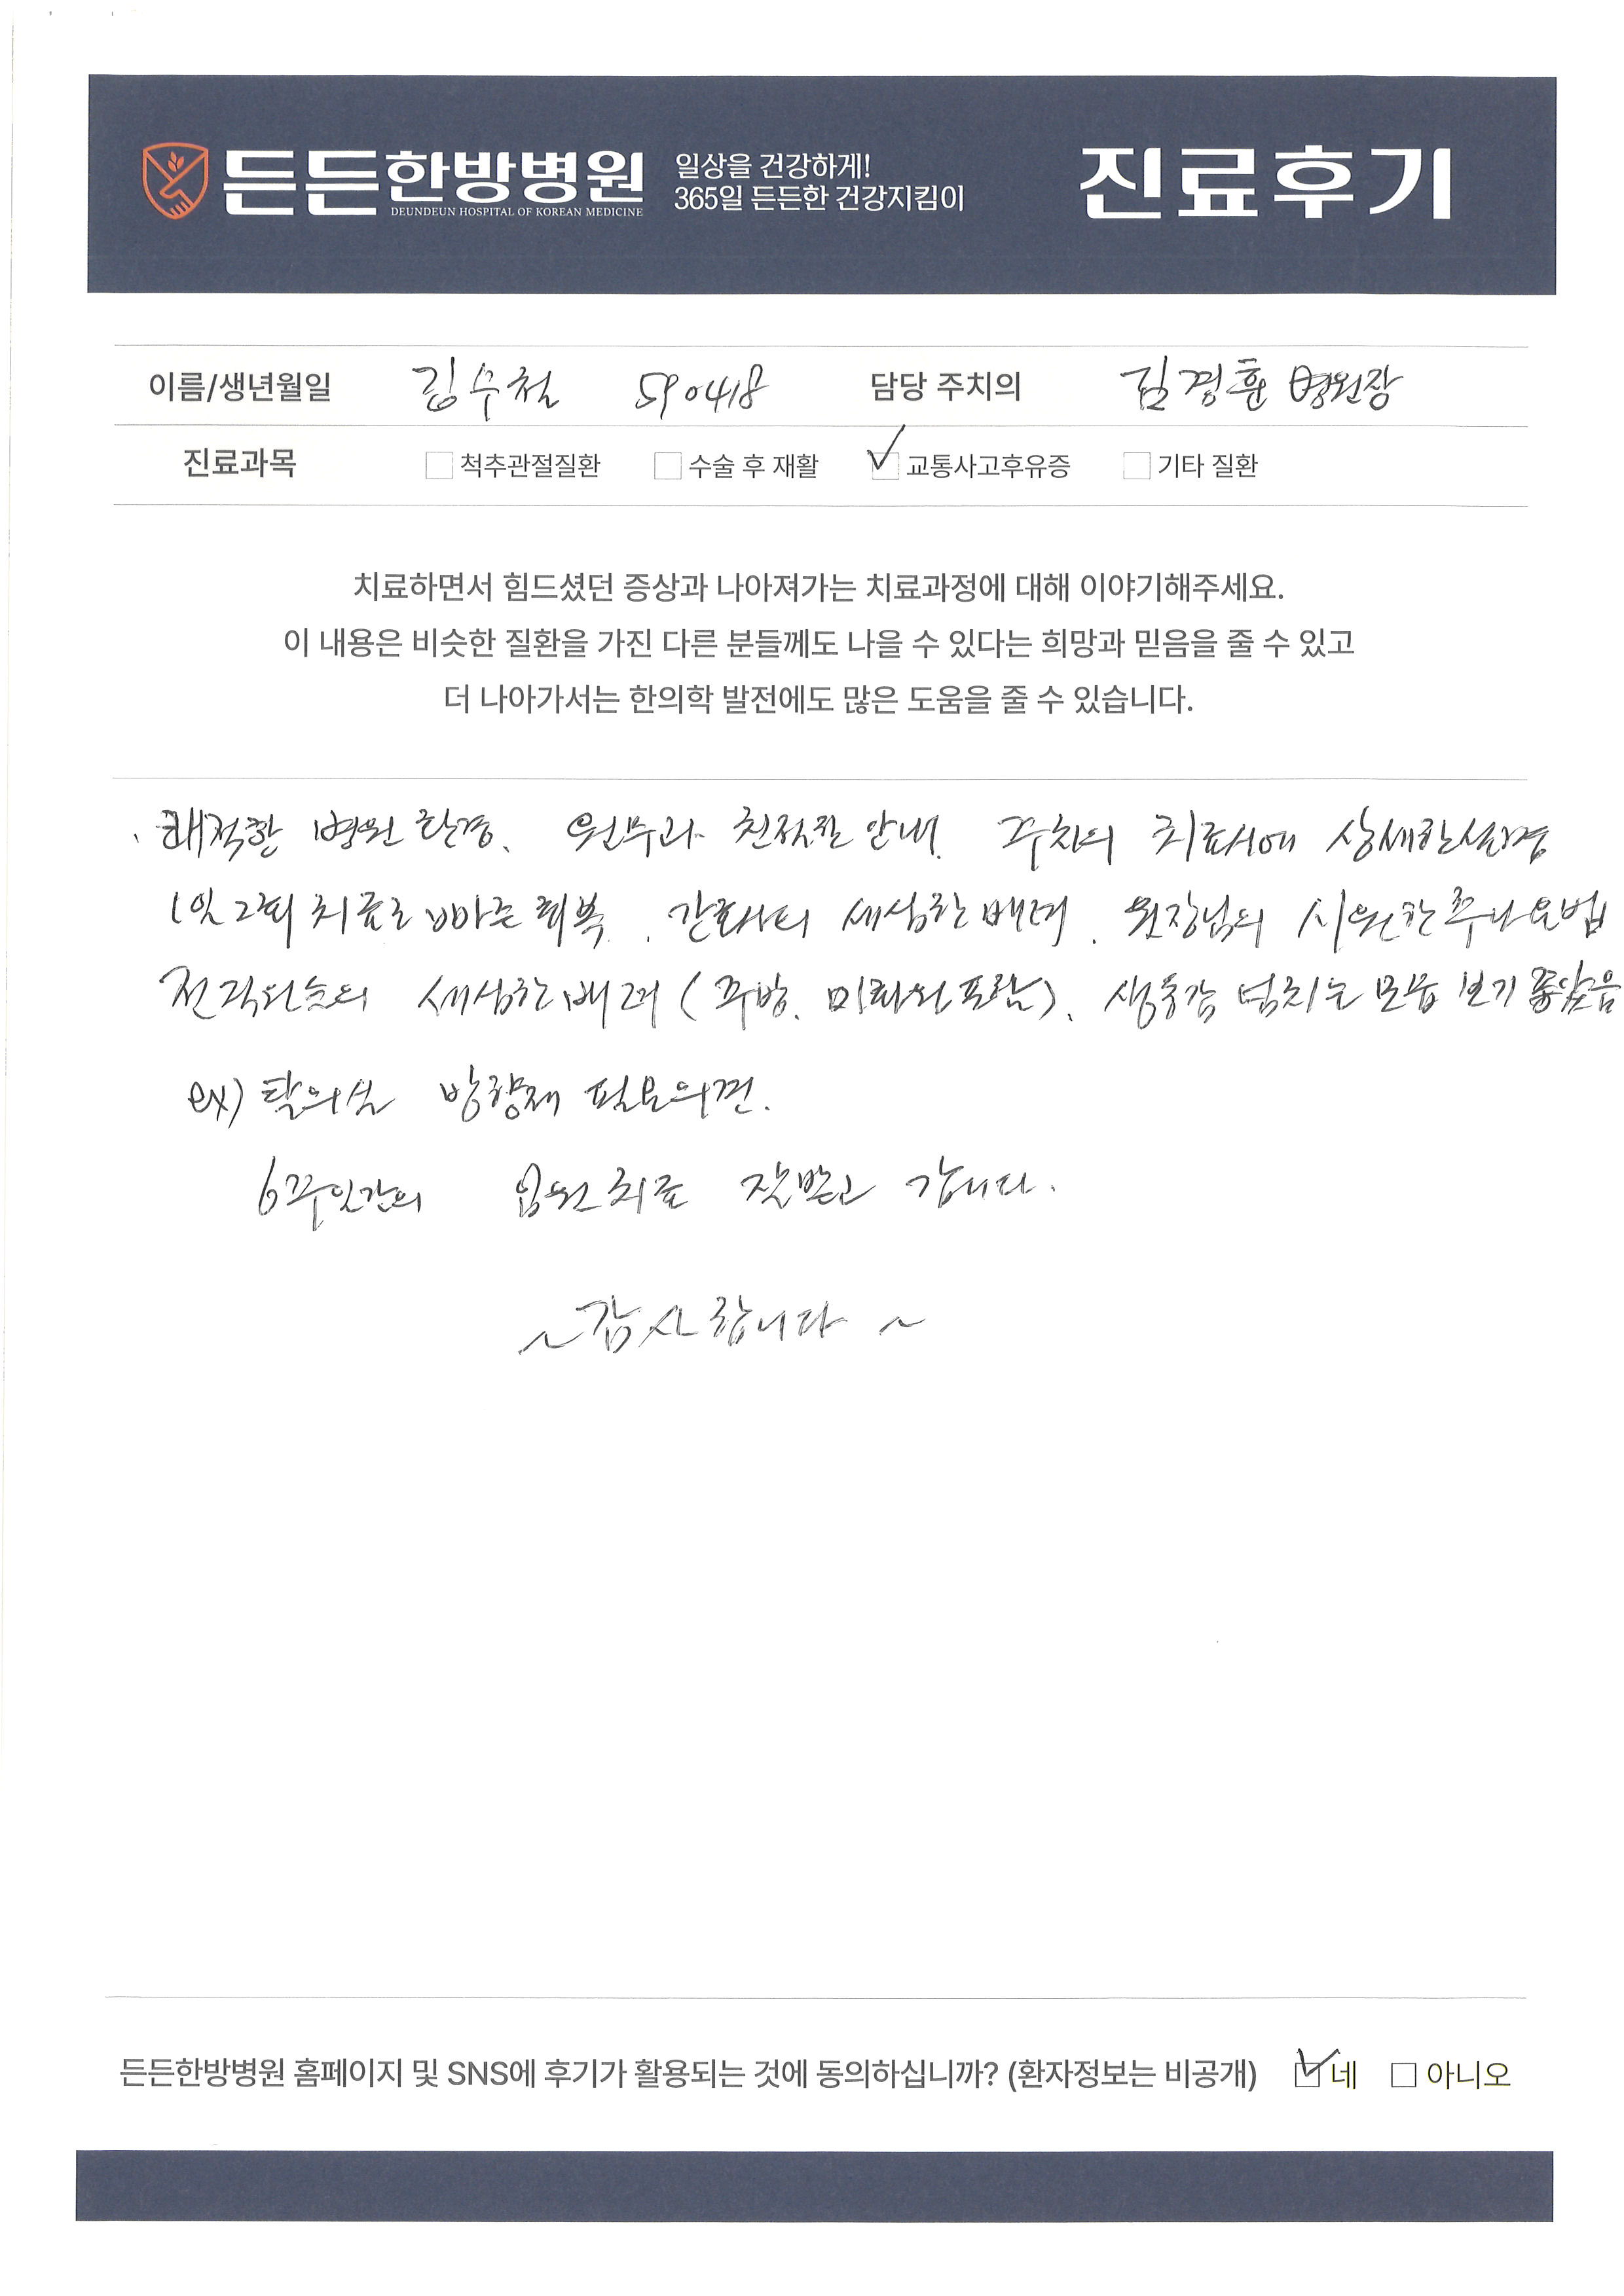 든든한방병원
DEUNDEUN HOSPITAL OF KOREAN MEDICINE
일상을 건강하게!
365일 든든한 건강지킴이
진료후기
이름/생년월일 김수철 590418 담당 주치의 김경훈 병원장
진료과목 척추관절질환 수술 후 재활 교통사고후유증 기타 질환
치료하면서 힘드셨던 증상과 나아져가는 치료과정에 대해 이야기해주세요.
이 내용은 비슷한 질환을 가진 다른 분들께도 나을 수 있다는 희망과 믿음을 줄 수 있고
더 나아가서는 한의학 발전에도 많은 도움을 줄 수 있습니다.
쾌적한 병원 환경. 원무과 친절한 안내. 주치의 치료시에 상세한 설명
1일 2회 치료로 빠른 회복. 간호사의 세심한 배려. 원장님의 시원한 추나요법
전 직원들의 세심한 배려 (주방. 미화원 포함). 생동감 넘치는 모습 보기 좋았음
ex) 탈의실 방향제 필요의견.
6주일간의 입원치료 잘받고 갑니다.
~감사합니다~
든든한방병원 홈페이지 및 SNS에 후기가 활용되는 것에 동의하십니까? (환자정보는 비공개) 네 아니오